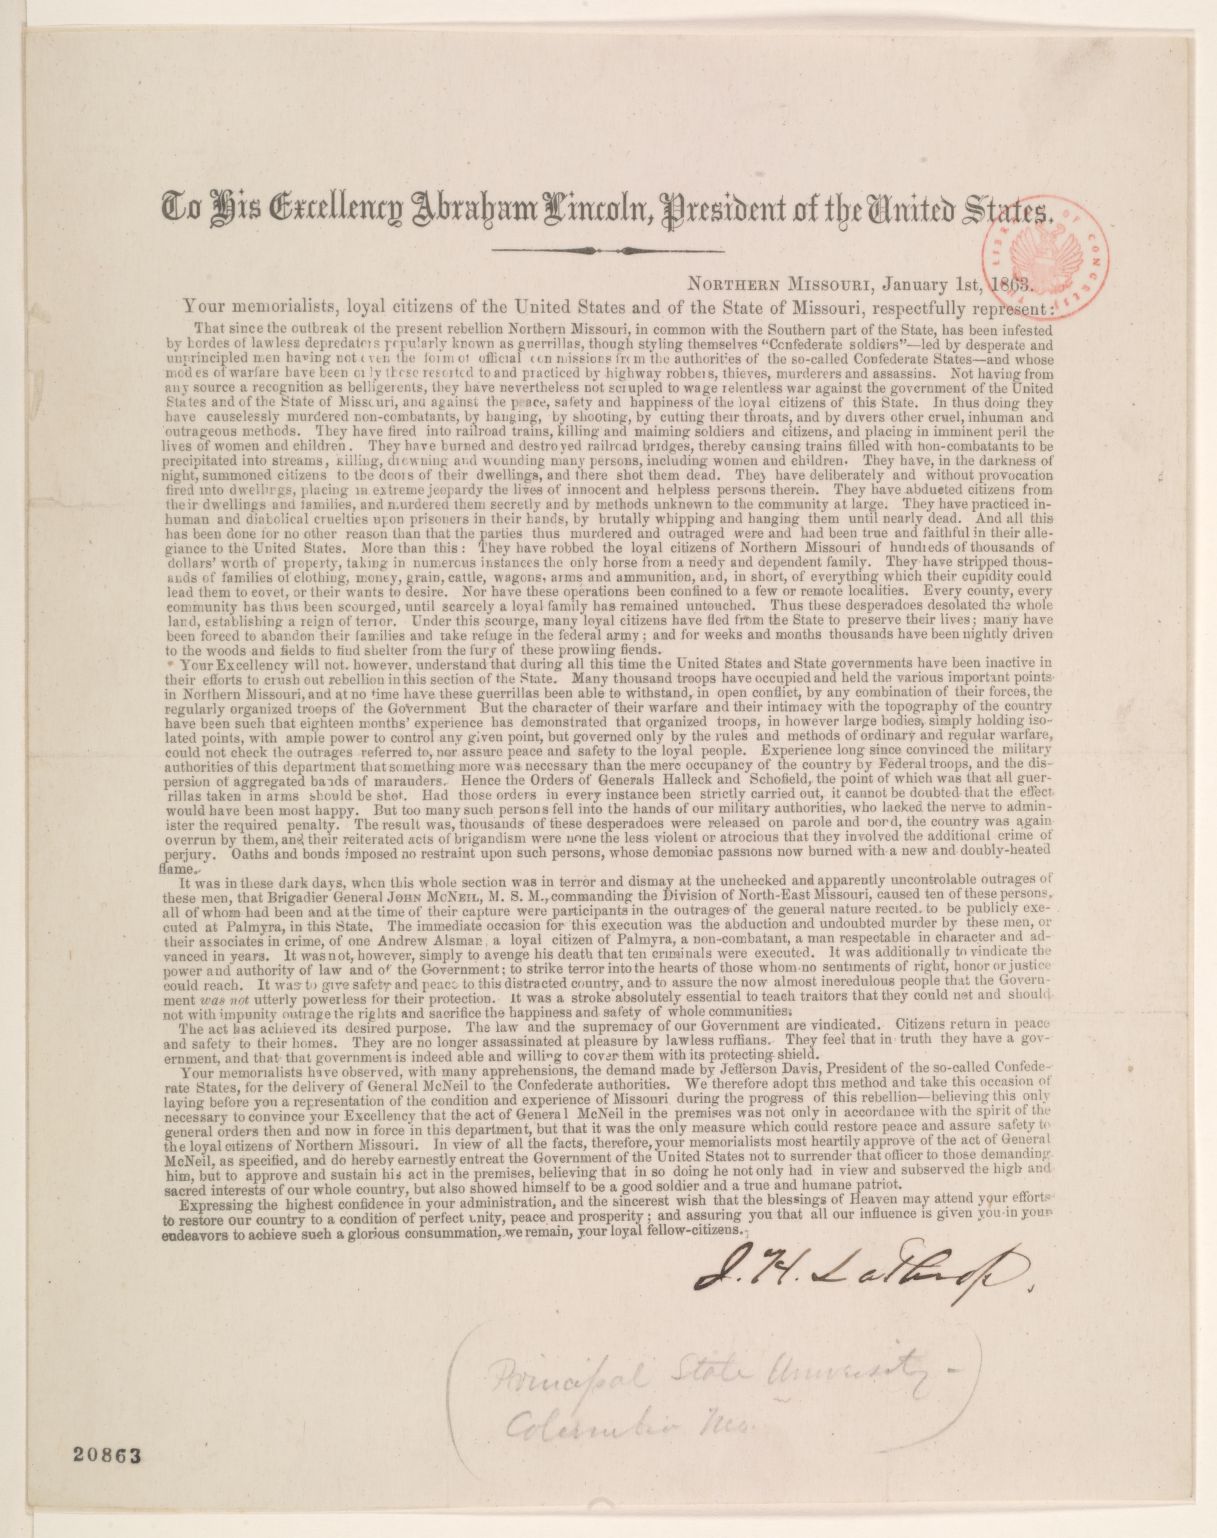 To His Excellency Abraham Lincoln, President of the United States.
LIBRARY OF CONGRESS
NORTHERN MISSOURI, January 1st, 1863.
Your memorialists, loyal citizens of the United States and of the State of Missouri, respectfully represent:
That since the outbreak of the present rebellion Northern Missouri, in common with the Southern part of the State, has been infested
by hordes of lawless depredators popularly known as guerrillas, though styling themselves “Confederate soldiers”—led by desperate and
unprincipled men having not even the form of official commissions from the authorities of the so-called Confederate States—and whose
modes of warfare have been only those resorted to and practiced by highway robbers, thieves, murderers and assassins. Not having from
any source a recognition as belligerents, they have nevertheless not scrupled to wage relentless war against the government of the United
States and of the State of Missouri, and against the peace, safety and happiness of the loyal citizens of this State. In thus doing they
have causelessly murdered non-combatants, by hanging, by shooting, by cutting their throats, and by divers other cruel, inhuman and
outrageous methods. They have fired into railroad trains, killing and maiming soldiers and citizens, and placing in imminent peril the
lives of women and children. They have burned and destroyed railroad bridges, thereby causing trains filled with non-combatants to be
precipitated into streams, killing, drowning and wounding many persons, including women and children. They have, in the darkness of
night, summoned citizens to the doors of their dwellings, and there shot them dead. They have deliberately and without provocation
fired into dwellings, placing in extreme jeopardy the lives of innocent and helpless persons therein. They have abducted citizens from
their dwellings and families, and murdered them secretly and by methods unknown to the community at large. They have practiced in-
human and diabolical cruelties upon prisoners in their hands, by brutally whipping and hanging them until nearly dead. And all this
has been done for no other reason than that the parties thus murdered and outraged were and had been true and faithful in their alle-
giance to the United States. More than this: They have robbed the loyal citizens of Northern Missouri of hundreds of thousands of
dollars' worth of property, taking in numerous instances the only horse from a needy and dependent family. They have stripped thous-
ands of families of clothing, money, grain, cattle, wagons, arms and ammunition, and, in short, of everything which their cupidity could
lead them to covet, or their wants to desire. Nor have these operations been confined to a few or remote localities. Every county, every
community has thus been scourged, until scarcely a loyal family has remained untouched. Thus these desperadoes desolated the whole
land, establishing a reign of terror. Under this scourge, many loyal citizens have fled from the State to preserve their lives; many have
been forced to abandon their families and take refuge in the federal army; and for weeks and months thousands have been nightly driven
to the woods and fields to find shelter from the fury of these prowling fiends.
Your Excellency will not, however, understand that during all this time the United States and State governments have been inactive in
their efforts to crush out rebellion in this section of the State. Many thousand troops have occupied and held the various important points
in Northern Missouri, and at no time have these guerrillas been able to withstand, in open conflict, by any combination of their forces, the
regularly organized troops of the Government But the character of their warfare and their intimacy with the topography of the country
have been such that eighteen months' experience has demonstrated that organized troops, in however large bodies, simply holding iso-
lated points, with ample power to control any given point, but governed only by the rules and methods of ordinary and regular warfare,
could not check the outrages referred to, nor assure peace and safety to the loyal people. Experience long since convinced the military
authorities of this department that something more was necessary than the mere occupancy of the country by Federal troops, and the dis-
persion of aggregated bands of marauders. Hence the Orders of Generals Halleck and Schofield, the point of which was that all guer-
rillas taken in arms should be shot. Had those orders in every instance been strictly carried out, it cannot be doubted that the effect
would have been most happy. But too many such persons fell into the hands of our military authorities, who lacked the nerve to admin-
ister the required penalty. The result was, thousands of these desperadoes were released on parole and bond, the country was again
overrun by them, and their reiterated acts of brigandism were none the less violent or atrocious that they involved the additional crime of
perjury. Oaths and bonds imposed no restraint upon such persons, whose demoniac passions now burned with a new and doubly-heated
flame.
It was in these dark days, when this whole section was in terror and dismay at the unchecked and apparently uncontrolable outrages of
these men, that Brigadier General JOHN MCNEIL, M. S. M., commanding the Division of North-East Missouri, caused ten of these persons,
all of whom had been and at the time of their capture were participants in the outrages of the general nature recited, to be publicly exe-
cuted at Palmyra, in this State. The immediate occasion for this execution was the abduction and undoubted murder by these men, or
their associates in crime, of one Andrew Alsman, a loyal citizen of Palmyra, a non-combatant, a man respectable in character and ad-
vanced in years. It was not, however, simply to avenge his death that ten criminals were executed. It was additionally to vindicate the
power and authority of law and of the Government; to strike terror into the hearts of those whom no sentiments of right, honor or justice
could reach. It was to give safety and peace to this distracted country, and to assure the now almost incredulous people that the Govern-
ment was not utterly powerless for their protection. It was a stroke absolutely essential to teach traitors that they could not and should
not with impunity outrage the rights and sacrifice the happiness and safety of whole communities.
The act has achieved its desired purpose. The law and the supremacy of our Government are vindicated. Citizens return in peace
and safety to their homes. They are no longer assassinated at pleasure by lawless ruffians. They feel that in truth they have a gov-
ernment, and that that government is indeed able and willing to cover them with its protecting shield.
Your memorialists have observed, with many apprehensions, the demand made by Jefferson Davis, President of the so-called Confede-
rate States, for the delivery of General McNeil to the Confederate authorities. We therefore adopt this method and take this occasion of
laying before you a representation of the condition and experience of Missouri during the progress of this rebellion—believing this only
necessary to convince your Excellency that the act of General McNeil in the premises was not only in accordance with the spirit of the
general orders then and now in force in this department, but that it was the only measure which could restore peace and assure safety to
the loyal citizens of Northern Missouri. In view of all the facts, therefore, your memorialists most heartily approve of the act of General
McNeil, as specified, and do hereby earnestly entreat the Government of the United States not to surrender that officer to those demanding
him, but to approve and sustain his act in the premises, believing that in so doing he not only had in view and subserved the high and
sacred interests of our whole country, but also showed himself to be a good soldier and a true and humane patriot.
Expressing the highest confidence in your administration, and the sincerest wish that the blessings of Heaven may attend your efforts
to restore our country to a condition of perfect unity, peace and prosperity; and assuring you that all our influence is given you in your
endeavors to achieve such a glorious consummation, we remain, your loyal fellow-citizens.
J. H. Lathrop.
(Principal State University -
Columbia Mo.)
20863